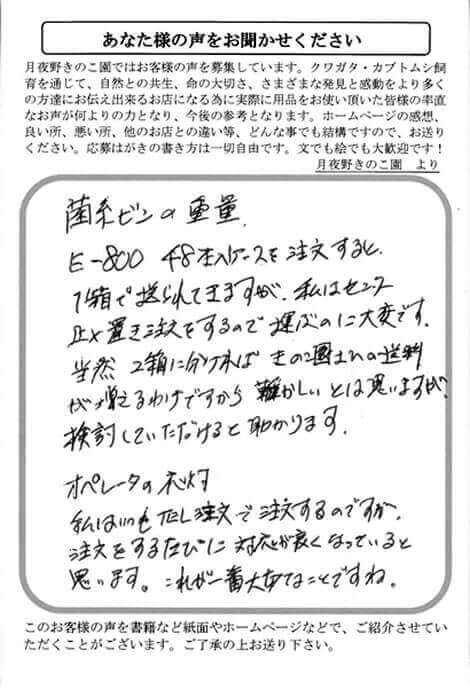 あなた様の声をお聞かせください
月夜野きのこ園ではお客様の声を募集しています。クワガタ・カブトムシ飼
育を通じて、自然との共生、命の大切さ、さまざまな発見と感動をより多く
の方達にお伝え出来るお店になる為に実際に用品をお使い頂いた皆様の率直
なお声が何よりの力となり、今後の参考となります。ホームページの感想、
良い所、悪い所、他のお店との違い等、どんな事でも結構ですので、お送り
ください。応募はがきの書き方は一切自由です。文でも絵でも大歓迎です！
月夜野きのこ園 より
菌糸ビンの重量.
E-800 48本入ケースを注文すると、
1箱で送られてきますが、私はセンター
止メ置き注文をするので運ぶのに大変です.
当然 2箱に分ければ きのこ園さんの送料
が増えるわけですから 難かしいとは思いますが、
検討していただけると助かります.
オペレータの
私はいつもTEL注文で注文するのですが、
注文をするたびに対応が良くなっていると
思います。これが一番大切なことですね.
このお客様の声を書籍など紙面やホームページなどで、ご紹介させてい
ただくことがございます。ご了承の上お送り下さい。